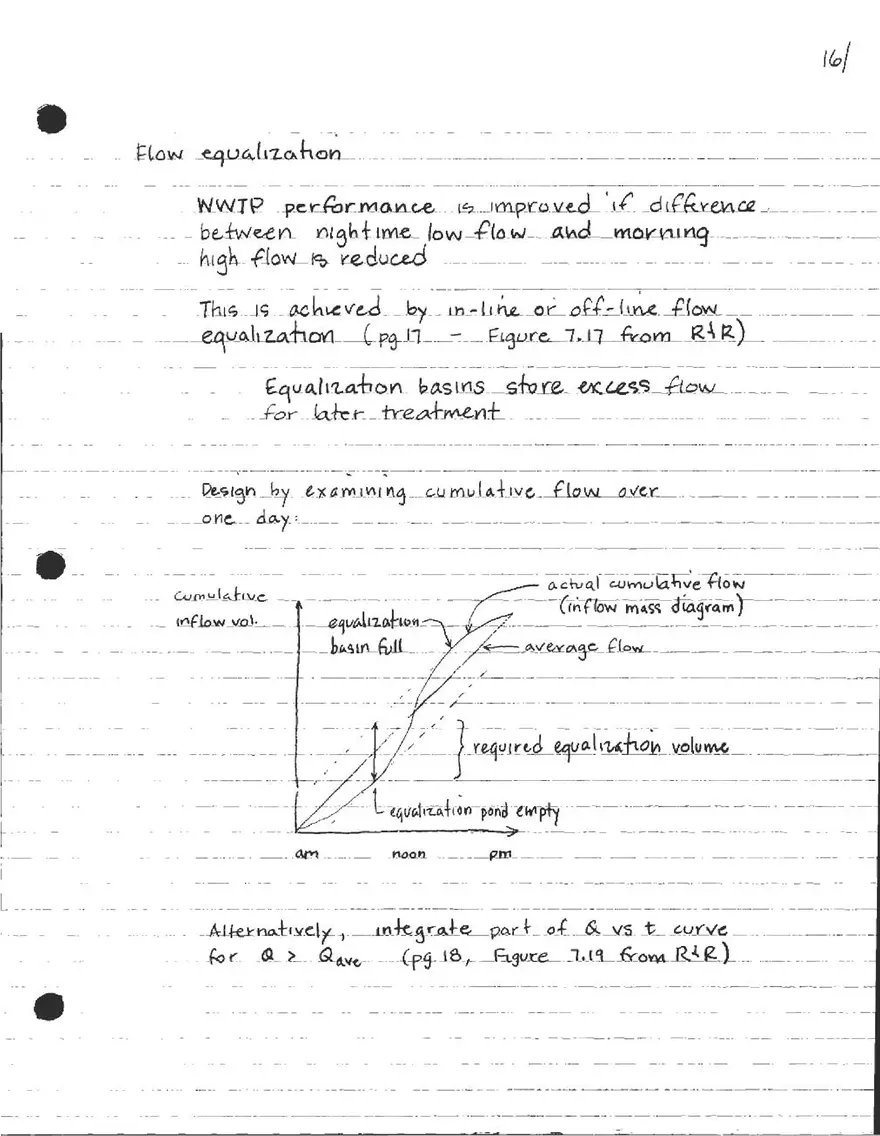 16/
Flow equalization
WWTP performance is improved if difference
between nightime low flow and morning
high flow is reduced
This is achieved by in-line or off-line flow
equalization (pg 17 - Figure 7.17 from R&R)
Equalization basins store excess flow
for later treatment
Design by examining cumulative flow over
one day:
cumulative
inflow vol.
equalization
basin full
actual cumulative flow
(inflow mass diagram)
average flow
required equalization volume
equalization pond empty
am noon pm
Alternatively, integrate part of Q vs t curve
for Q > Qave (pg 18, Figure 7.19 from R&R)